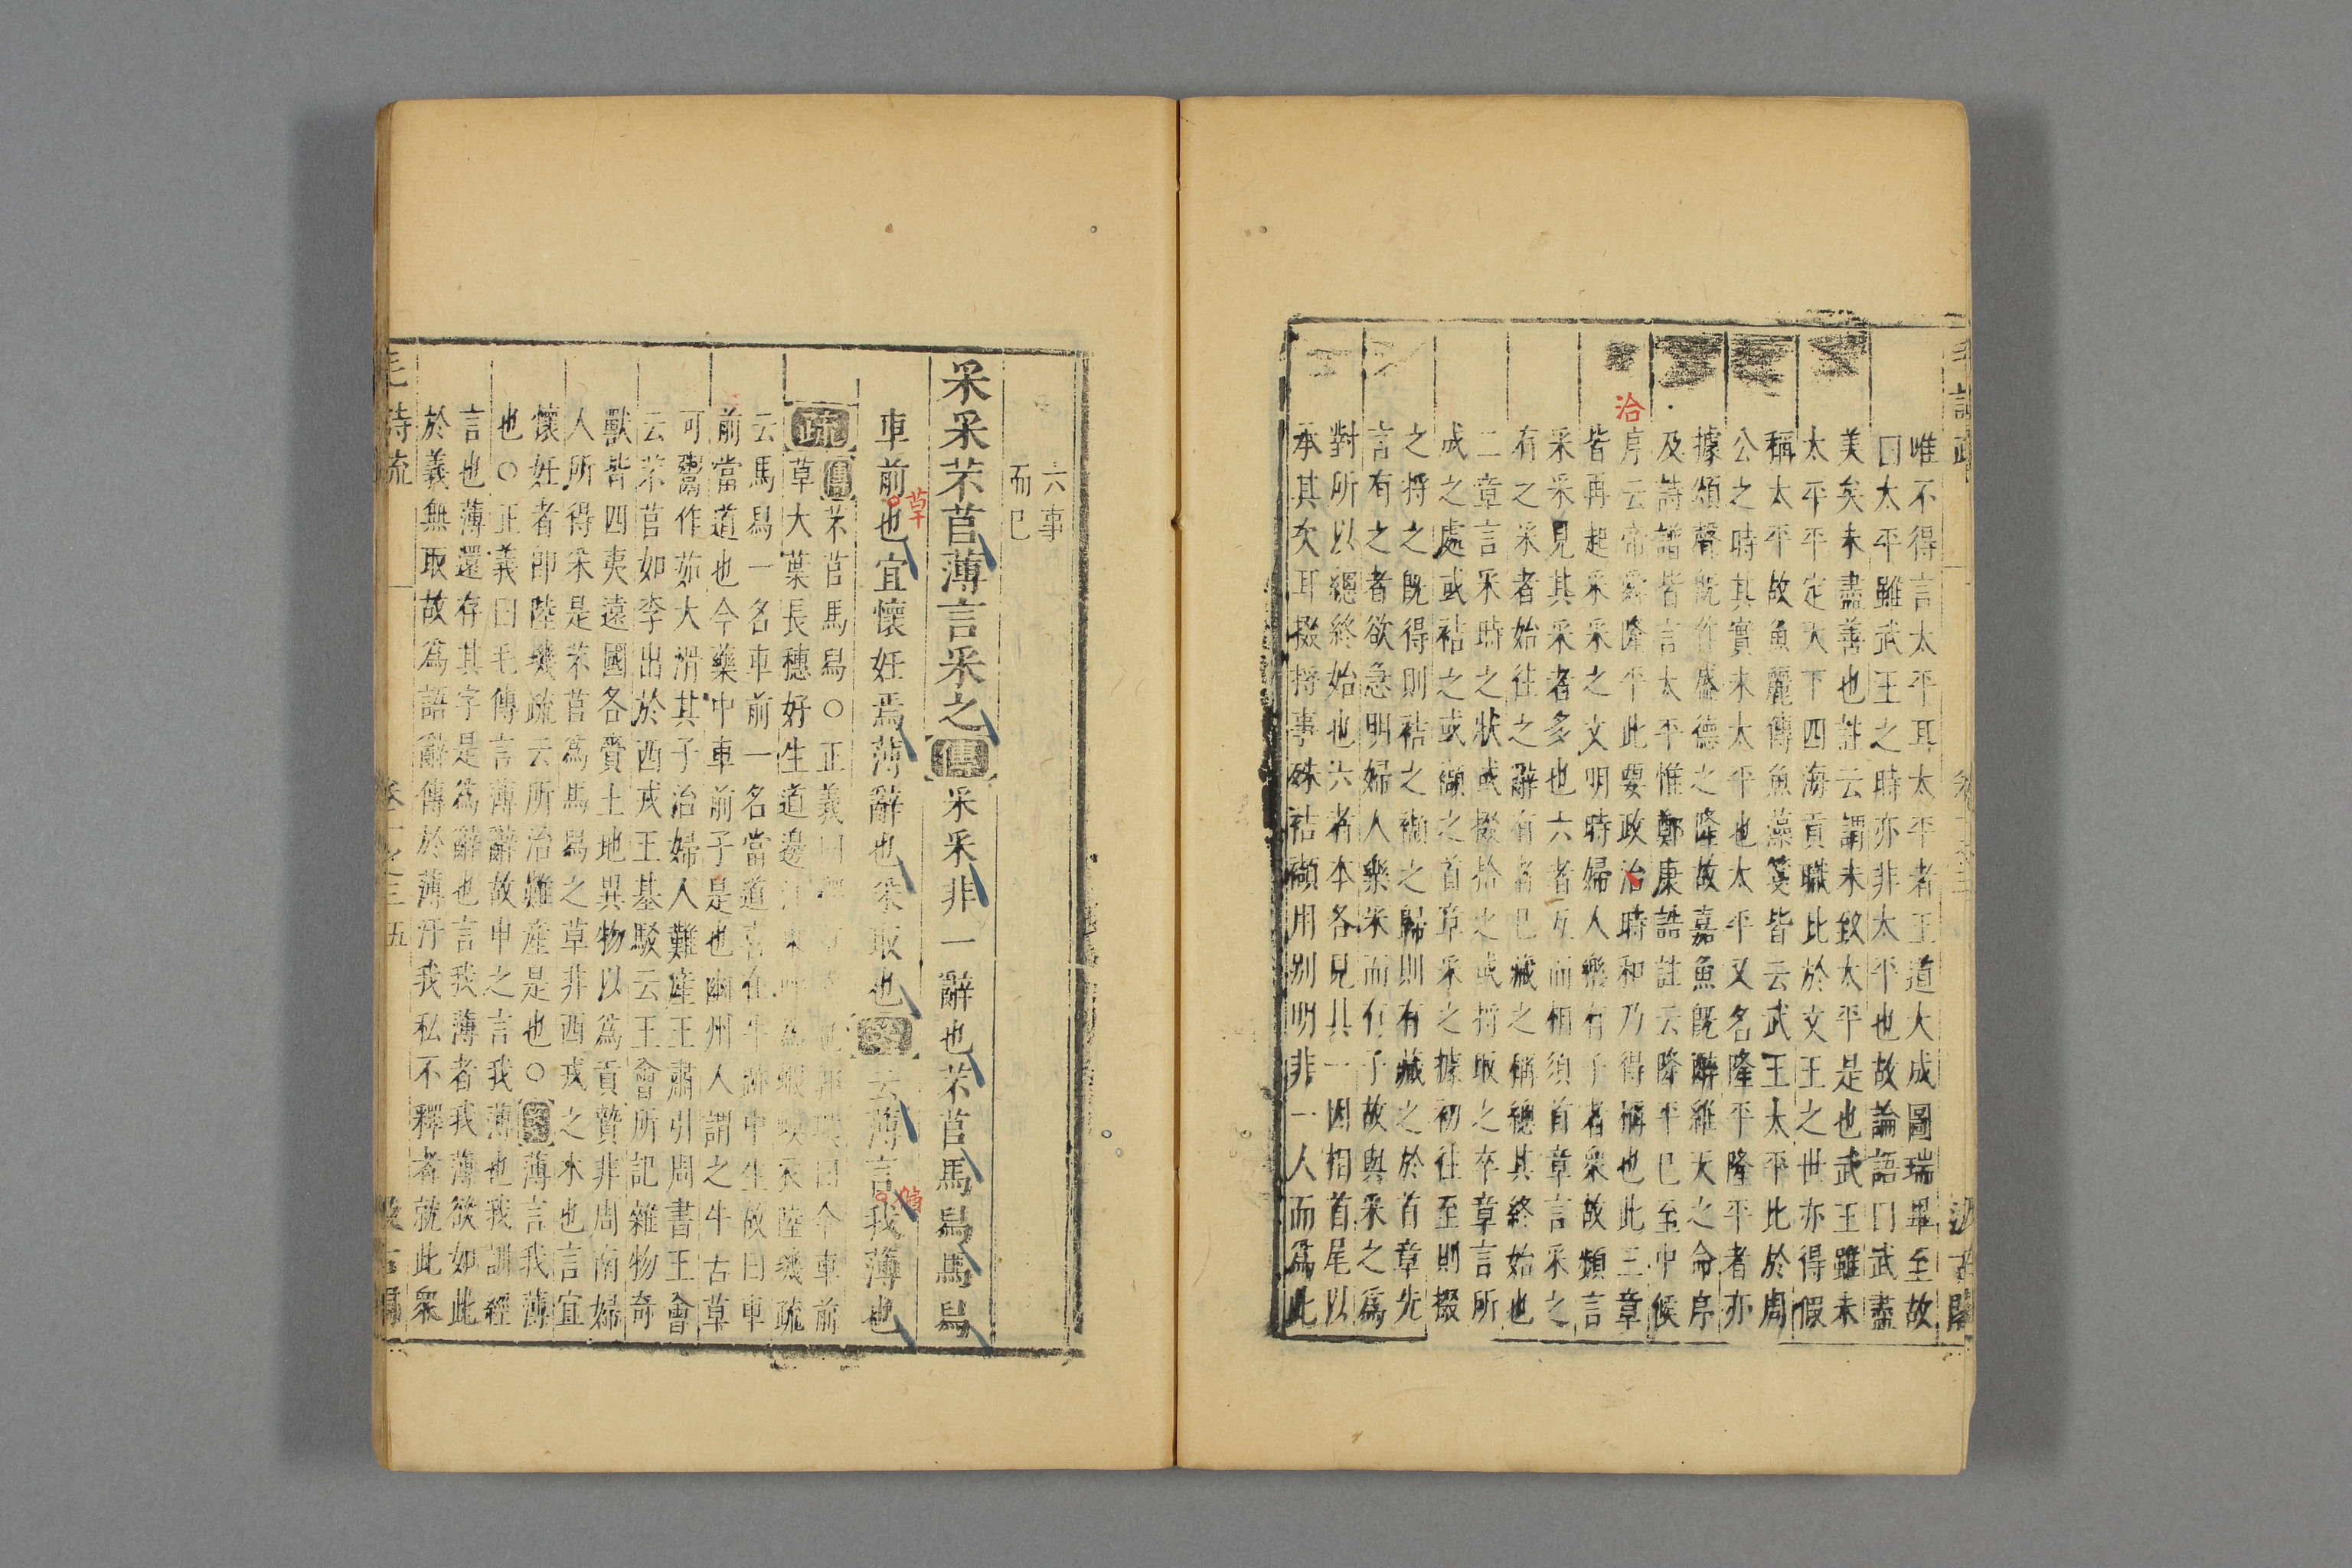 唯不得言太平耳太平者王道大成圖瑞畢至故
曰太平雖武王之時亦非太平也故論語曰武盡
美矣未盡善也註云謂未致太平是也武王雖未
太平平定天下四海貢職比於文王之世亦得假
稱太平故魚麗傳魚藻箋皆云武王太平比於周
公之時其實未太平也太平又名隆平隆平者亦
據頌聲既作盛德之隆故嘉魚既醉維天之命序
及詩譜皆言太平惟鄭康誥註云隆平已至中候
序云帝舜隆平此要政治時和乃得稱也此三章
洽
皆再起采采之文明時婦人樂有子者衆故頻言
采采見其采者多也六者互而相須首章言采之
有之采者始往之辭有者已藏之稱總其終始也
二章言采時之狀或掇拾之或捋取之卒章言所
成之處或袺之或襭之首章采之據初往至則掇
之捋之既得則袺之襭之歸則有藏之於首章先
言有之者欲急明婦人樂采而有子故與采之為
對所以總終始也六者本各見其一因相首尾以
承其次耳掇捋事殊袺襭用别明非一人而為此
六事
而已
采采芣苢薄言采之傳采采非一辭也芣苢馬舄馬舄
車前也宜懷妊焉薄辭也采取也箋云薄言我薄也
草
疏傳芣苢馬舄○正義曰釋草文也郭璞曰今車前
草大葉長穗好生道邊江東呼為蝦蟆衣陸璣疏
云馬舄一名車前一名當道喜在牛跡中生故曰車
前當道也今藥中車前子是也幽州人謂之牛古草
可鬻作茹大滑其子治婦人難產王肅引周書王會
云芣苢如李出於西戎王基駁云王會所記雜物奇
獸皆四夷遠國各賫土地異物以為貢贄非周南婦
人所得采是芣苢為馬舄之草非西戎之木也言宜
懷妊者即陸璣疏云所治難產是也○箋薄言我薄
也○正義曰毛傳言薄辭故申之言我薄也我訓經
言也薄還存其字是為辭也言我薄者我薄欲如此
於義無取故為語辭傳於薄汙我私不釋者就此衆